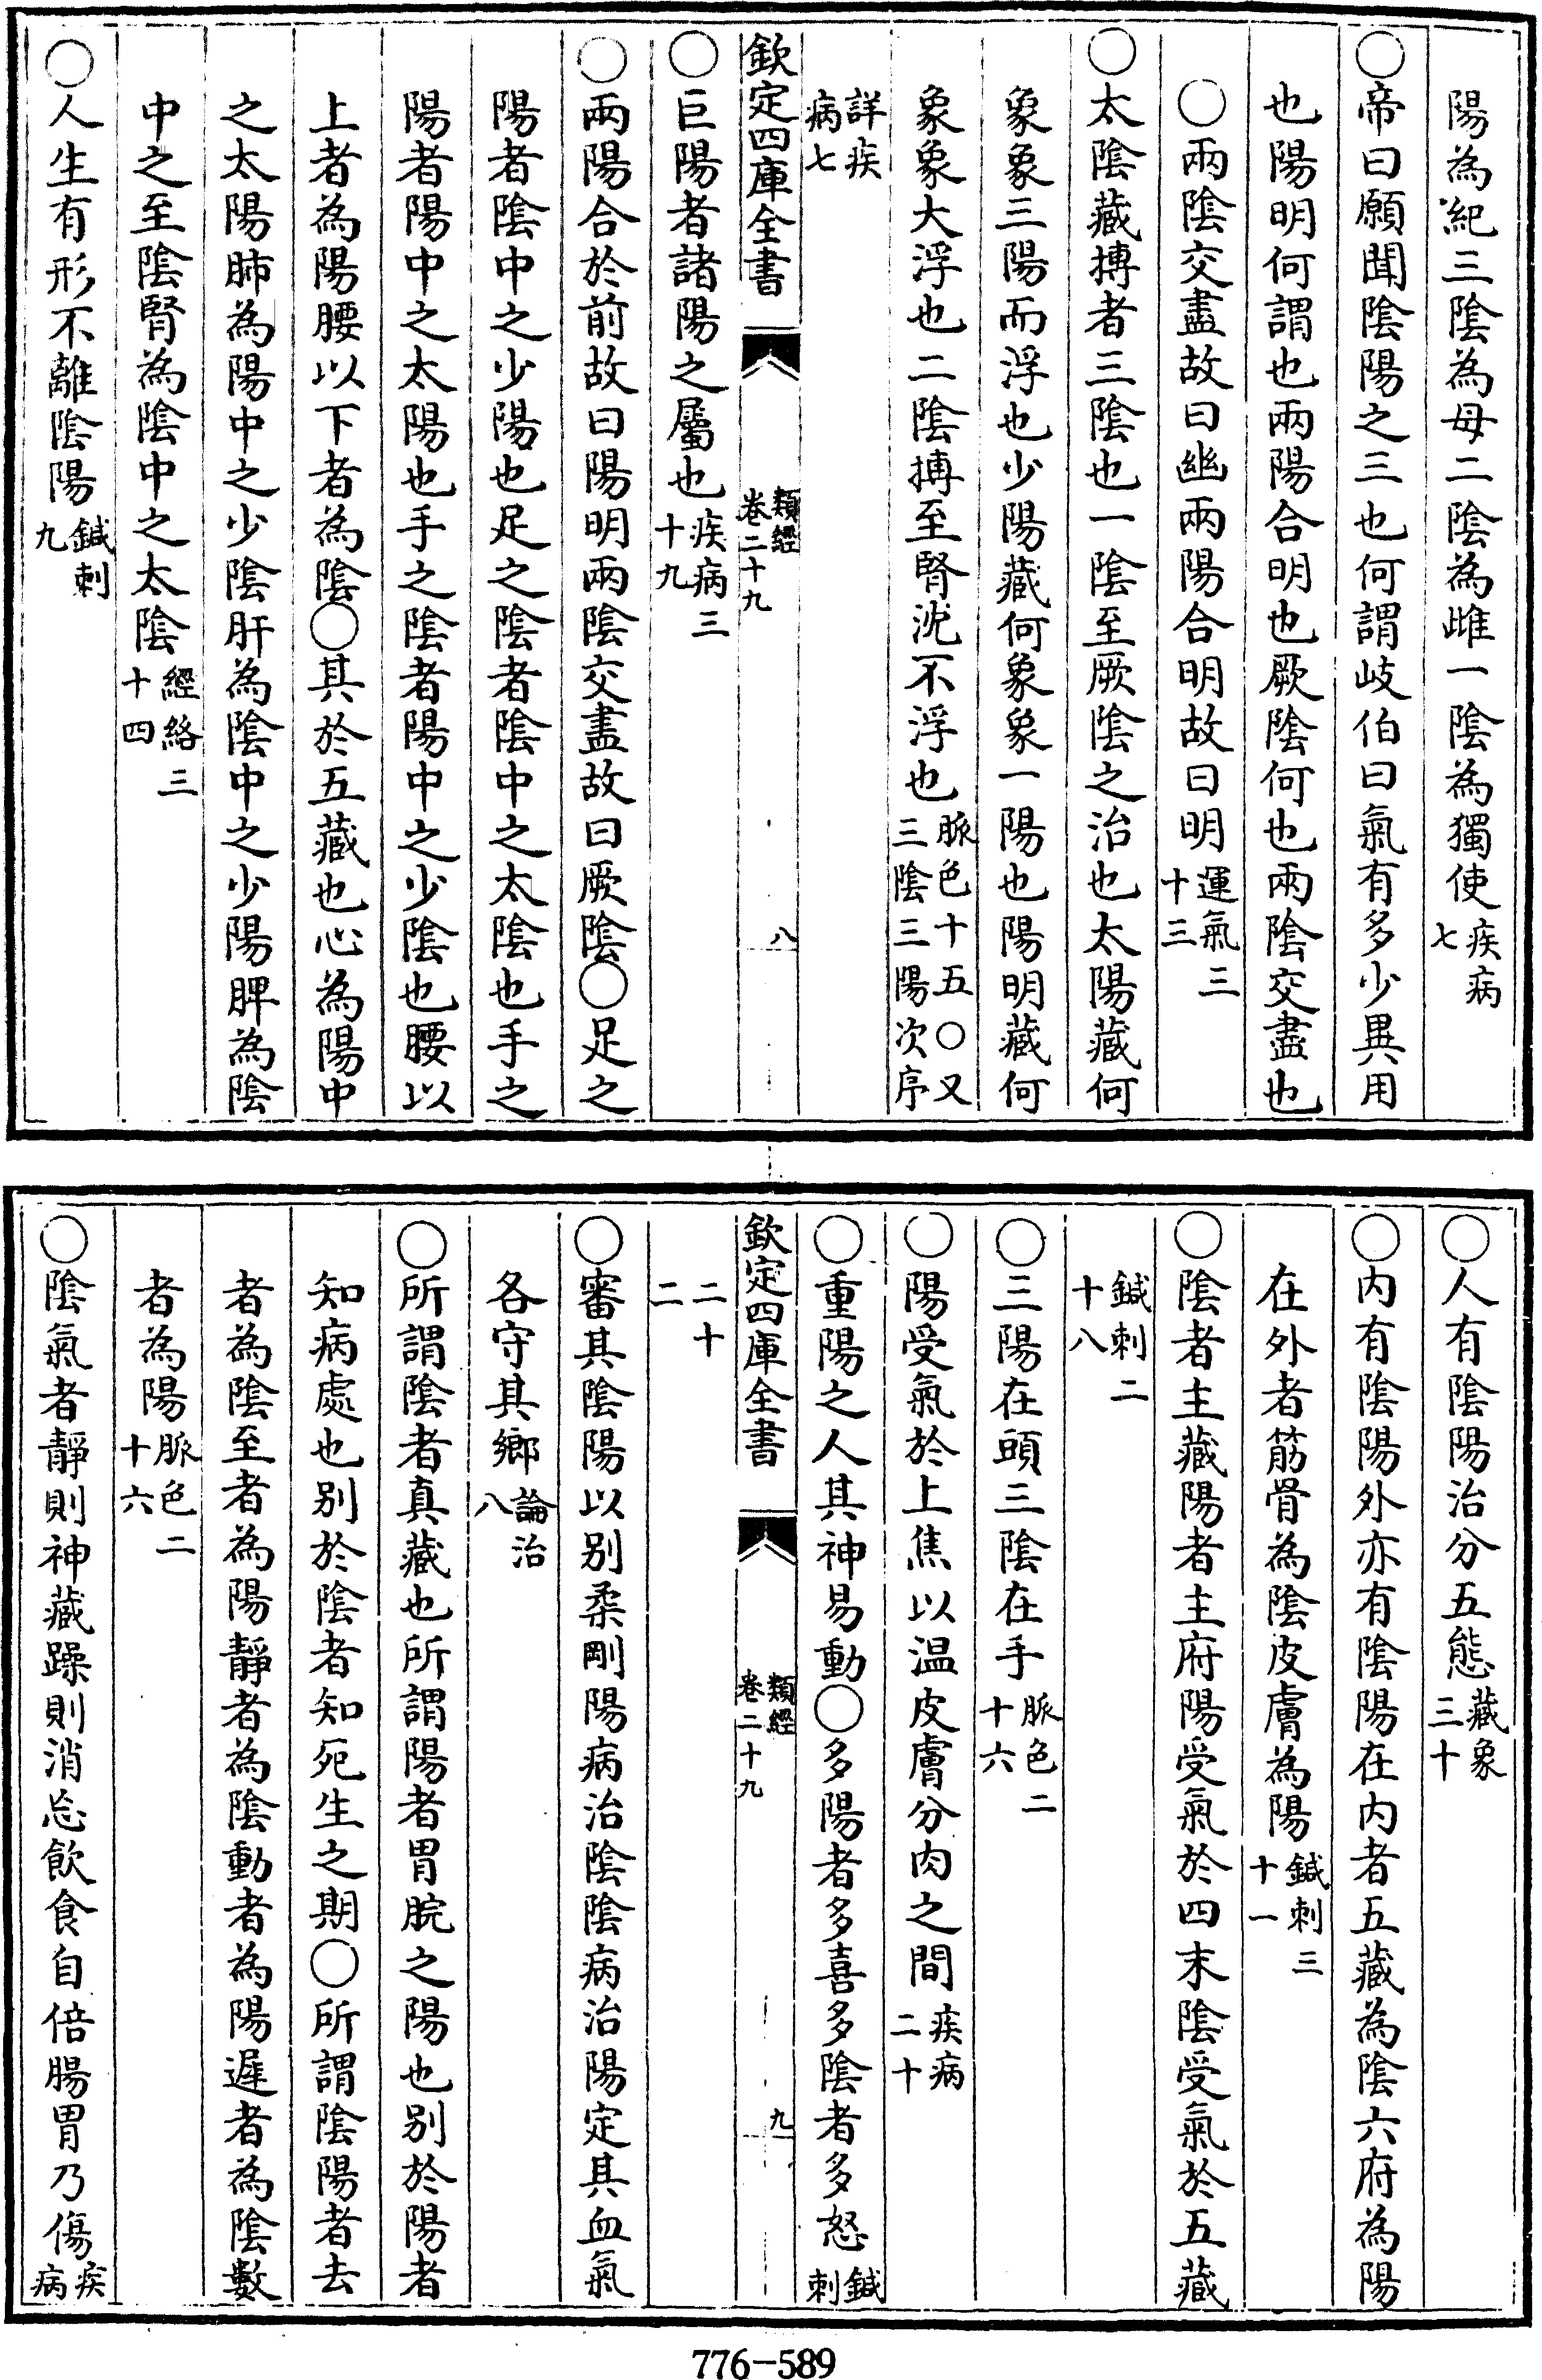 陽為紀三陰為母二陰為雌一陰為獨使疾病七
○帝曰願聞陰陽之三也何謂岐伯曰氣有多少異用
也陽明何謂也兩陽合明也厥陰何也兩陰交盡也
○兩陰交盡故曰幽兩陽合明故曰明運氣三十三
○太陰藏搏者三陰也一陰至厥陰之治也太陽藏何
象象三陽而浮也少陽藏何象象一陽也陽明藏何
象象大浮也二陰搏至腎沈不浮也脈色十五○又三陰三陽次序
詳疾病七
欽定四庫全書 類經卷二十九 八
○巨陽者諸陽之屬也疾病三十九
○兩陽合於前故曰陽明兩陰交盡故曰厥陰○足之
陽者陰中之少陽也足之陰者陰中之太陰也手之
陽者陽中之太陽也手之陰者陽中之少陰也腰以
上者為陽腰以下者為陰○其於五藏也心為陽中
之太陽肺為陽中之少陰肝為陰中之少陽脾為陰
中之至陰腎為陰中之太陰經絡三十四
○人生有形不離陰陽鍼刺九
○人有陰陽治分五態藏象三十
○內有陰陽外亦有陰陽在內者五藏為陰六府為陽
在外者筋骨為陰皮膚為陽鍼刺三十一
○陰者主藏陽者主府陽受氣於四末陰受氣於五藏
鍼刺二十八
○三陽在頭三陰在手脈色二十六
○陽受氣於上焦以温皮膚分肉之間疾病二十
○重陽之人其神易動○多陽者多喜多陰者多怒鍼刺
欽定四庫全書 類經卷二十九 九
二十二
○審其陰陽以别柔剛陽病治陰陰病治陽定其血氣
各守其鄉論治八
○所謂陰者真藏也所謂陽者胃脘之陽也别於陽者
知病處也别於陰者知死生之期○所謂陰陽者去
者為陰至者為陽靜者為陰動者為陽遲者為陰數
者為陽脈色二十六
○陰氣者靜則神藏躁則消亡飲食自倍腸胃乃傷疾病
776-589